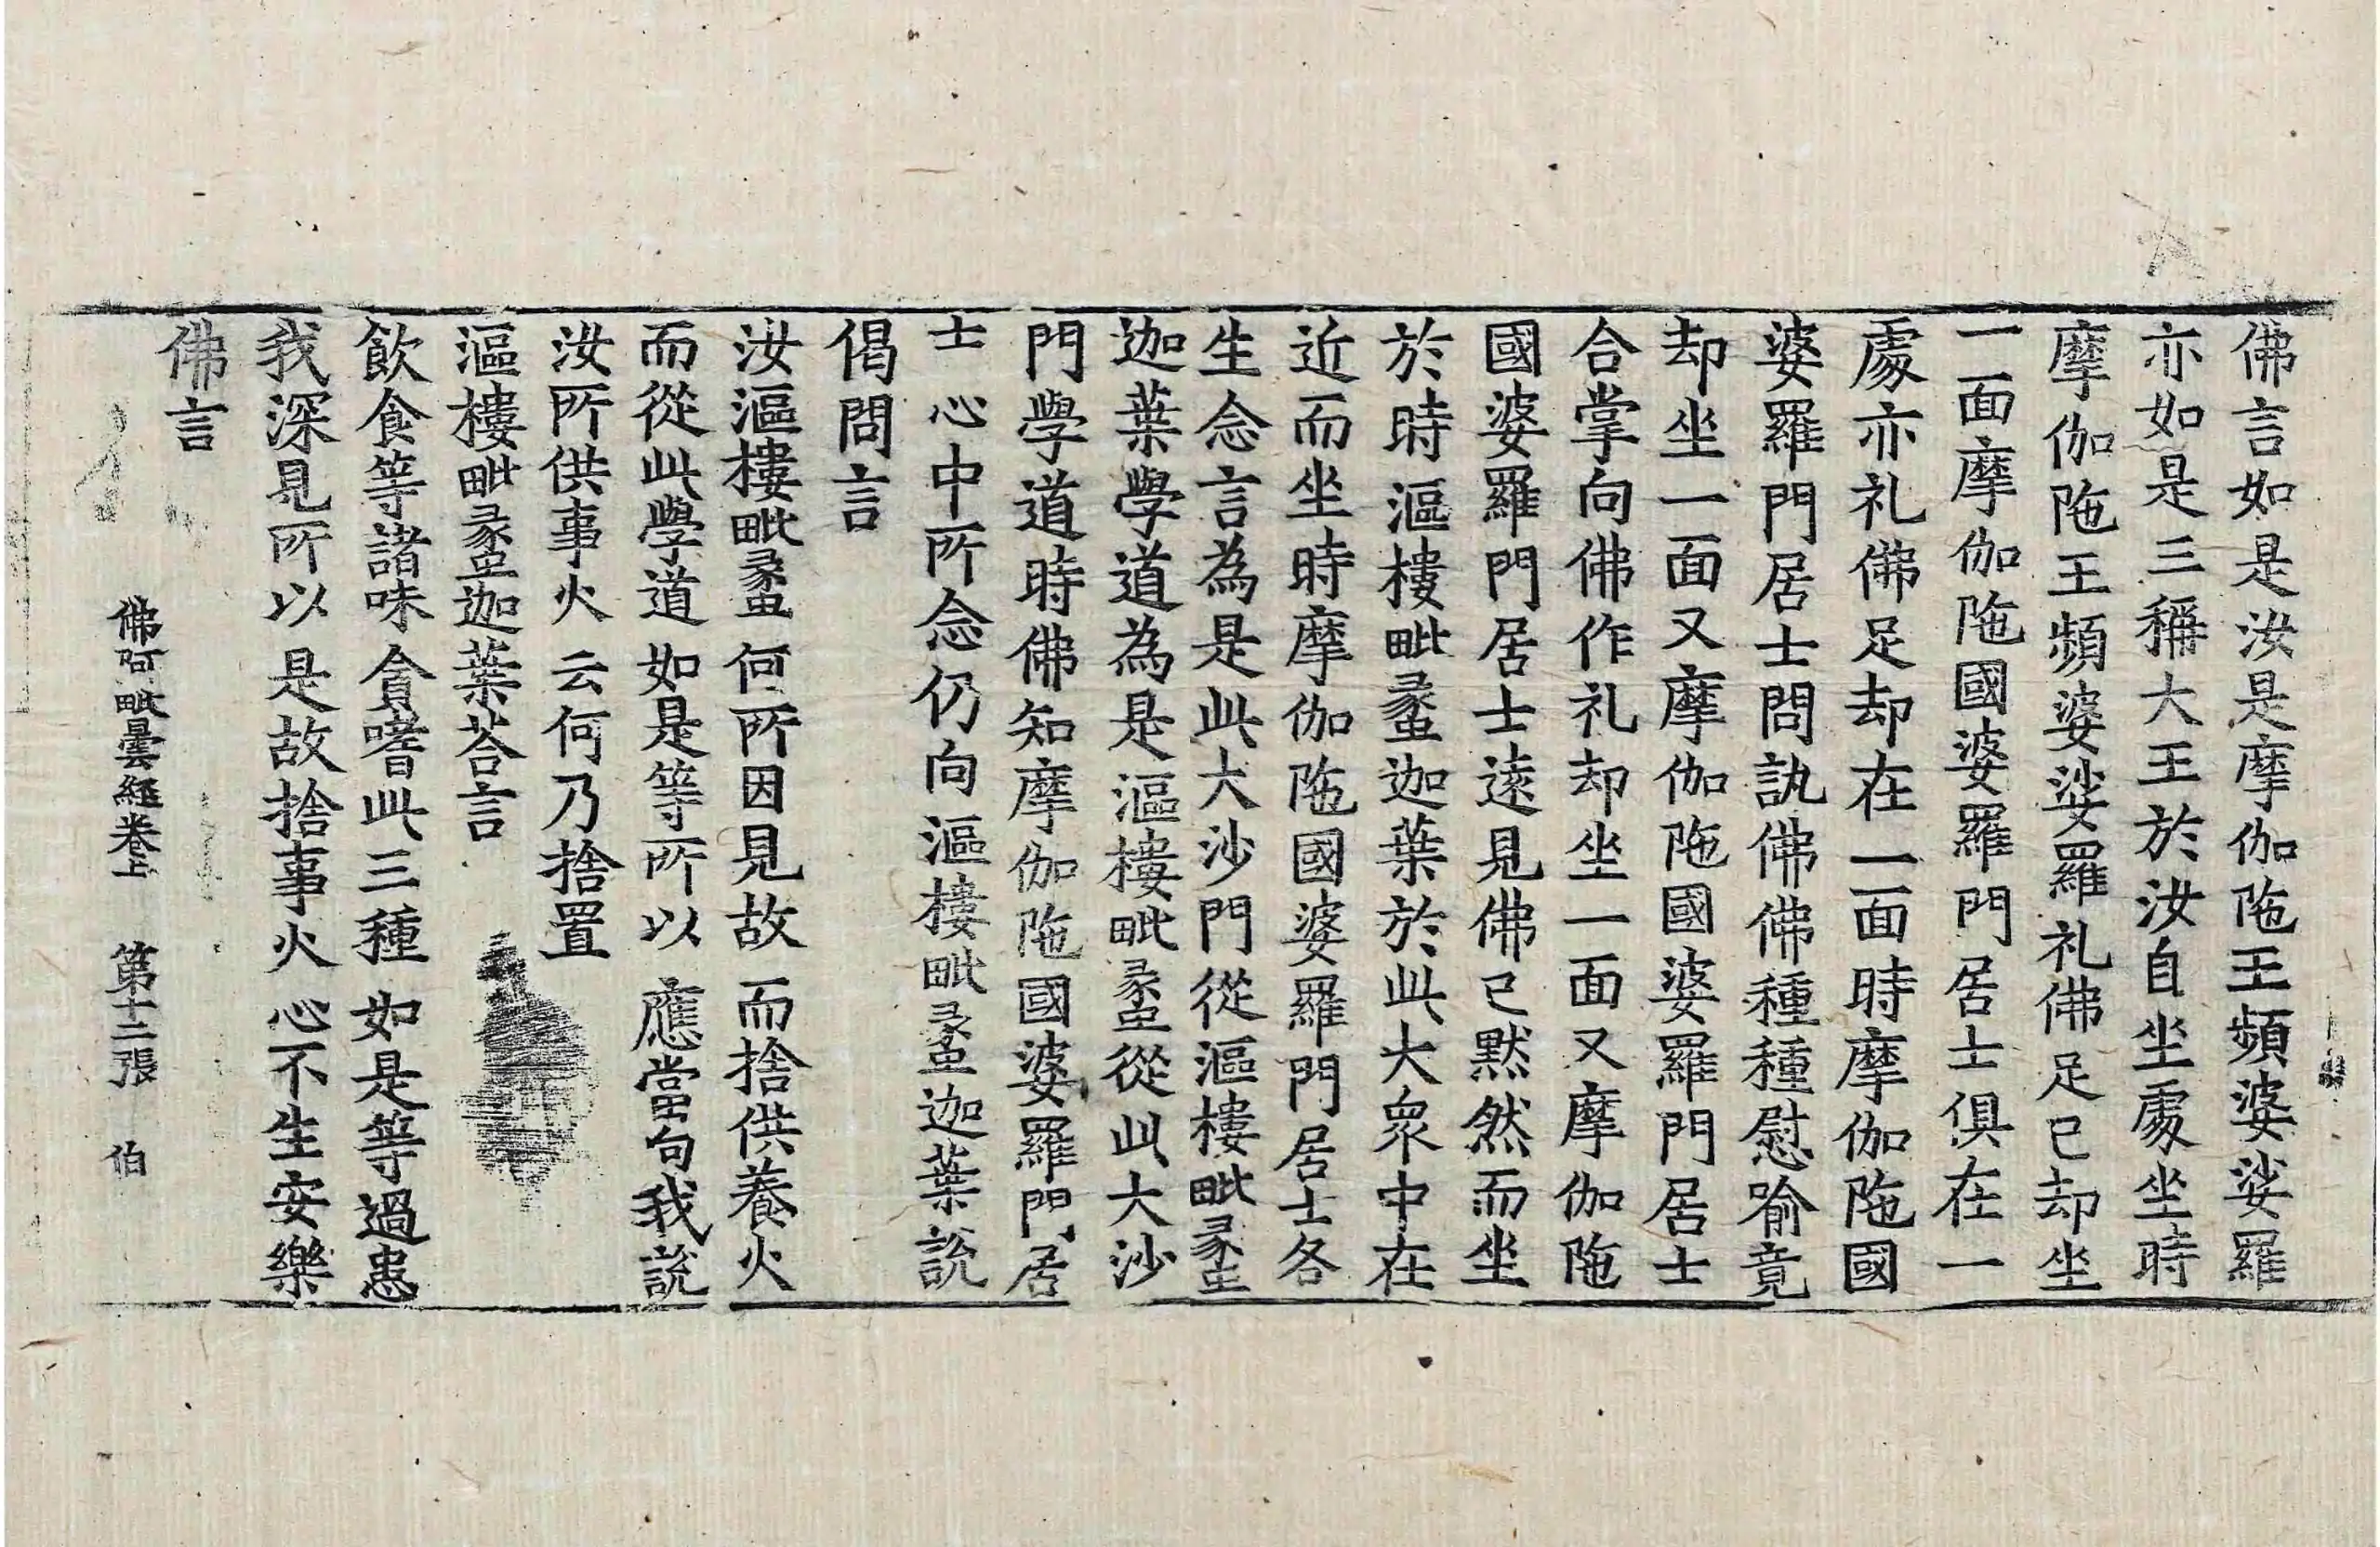 佛言如是汝是摩伽陁王頻婆娑羅
亦如是三稱大王於汝自坐處坐時
摩伽陁王頻婆娑羅礼佛足已却坐
一面摩伽陁國婆羅門居士俱在一
處亦礼佛足却在一面時摩伽陁國
婆羅門居士問訊佛佛種種慰喻竟
却坐一面又摩伽陁國婆羅門居士
合掌向佛作礼却坐一面又摩伽陁
國婆羅門居士遠見佛已默然而坐
於時漚樓毗蠡迦葉於此大衆中在
近而坐時摩伽陁國婆羅門居士各
生念言為是此大沙門從漚樓毗蠡
迦葉學道為是漚樓毗蠡從此大沙
門學道時佛知摩伽陁國婆羅門居
士心中所念仍向漚樓毗蠡迦葉說
偈問言
汝漚樓毗蠡 何所因見故 而捨供養火
而從此學道 如是等所以 應當句我說
汝所供事火 云何乃捨置
漚樓毗蠡迦葉荅言
飲食等諸味 貪嗜此三種 如是等過患
我深見所以 是故捨事火 心不生安樂
佛言
佛阿毗曇經卷上 第十二張 伯